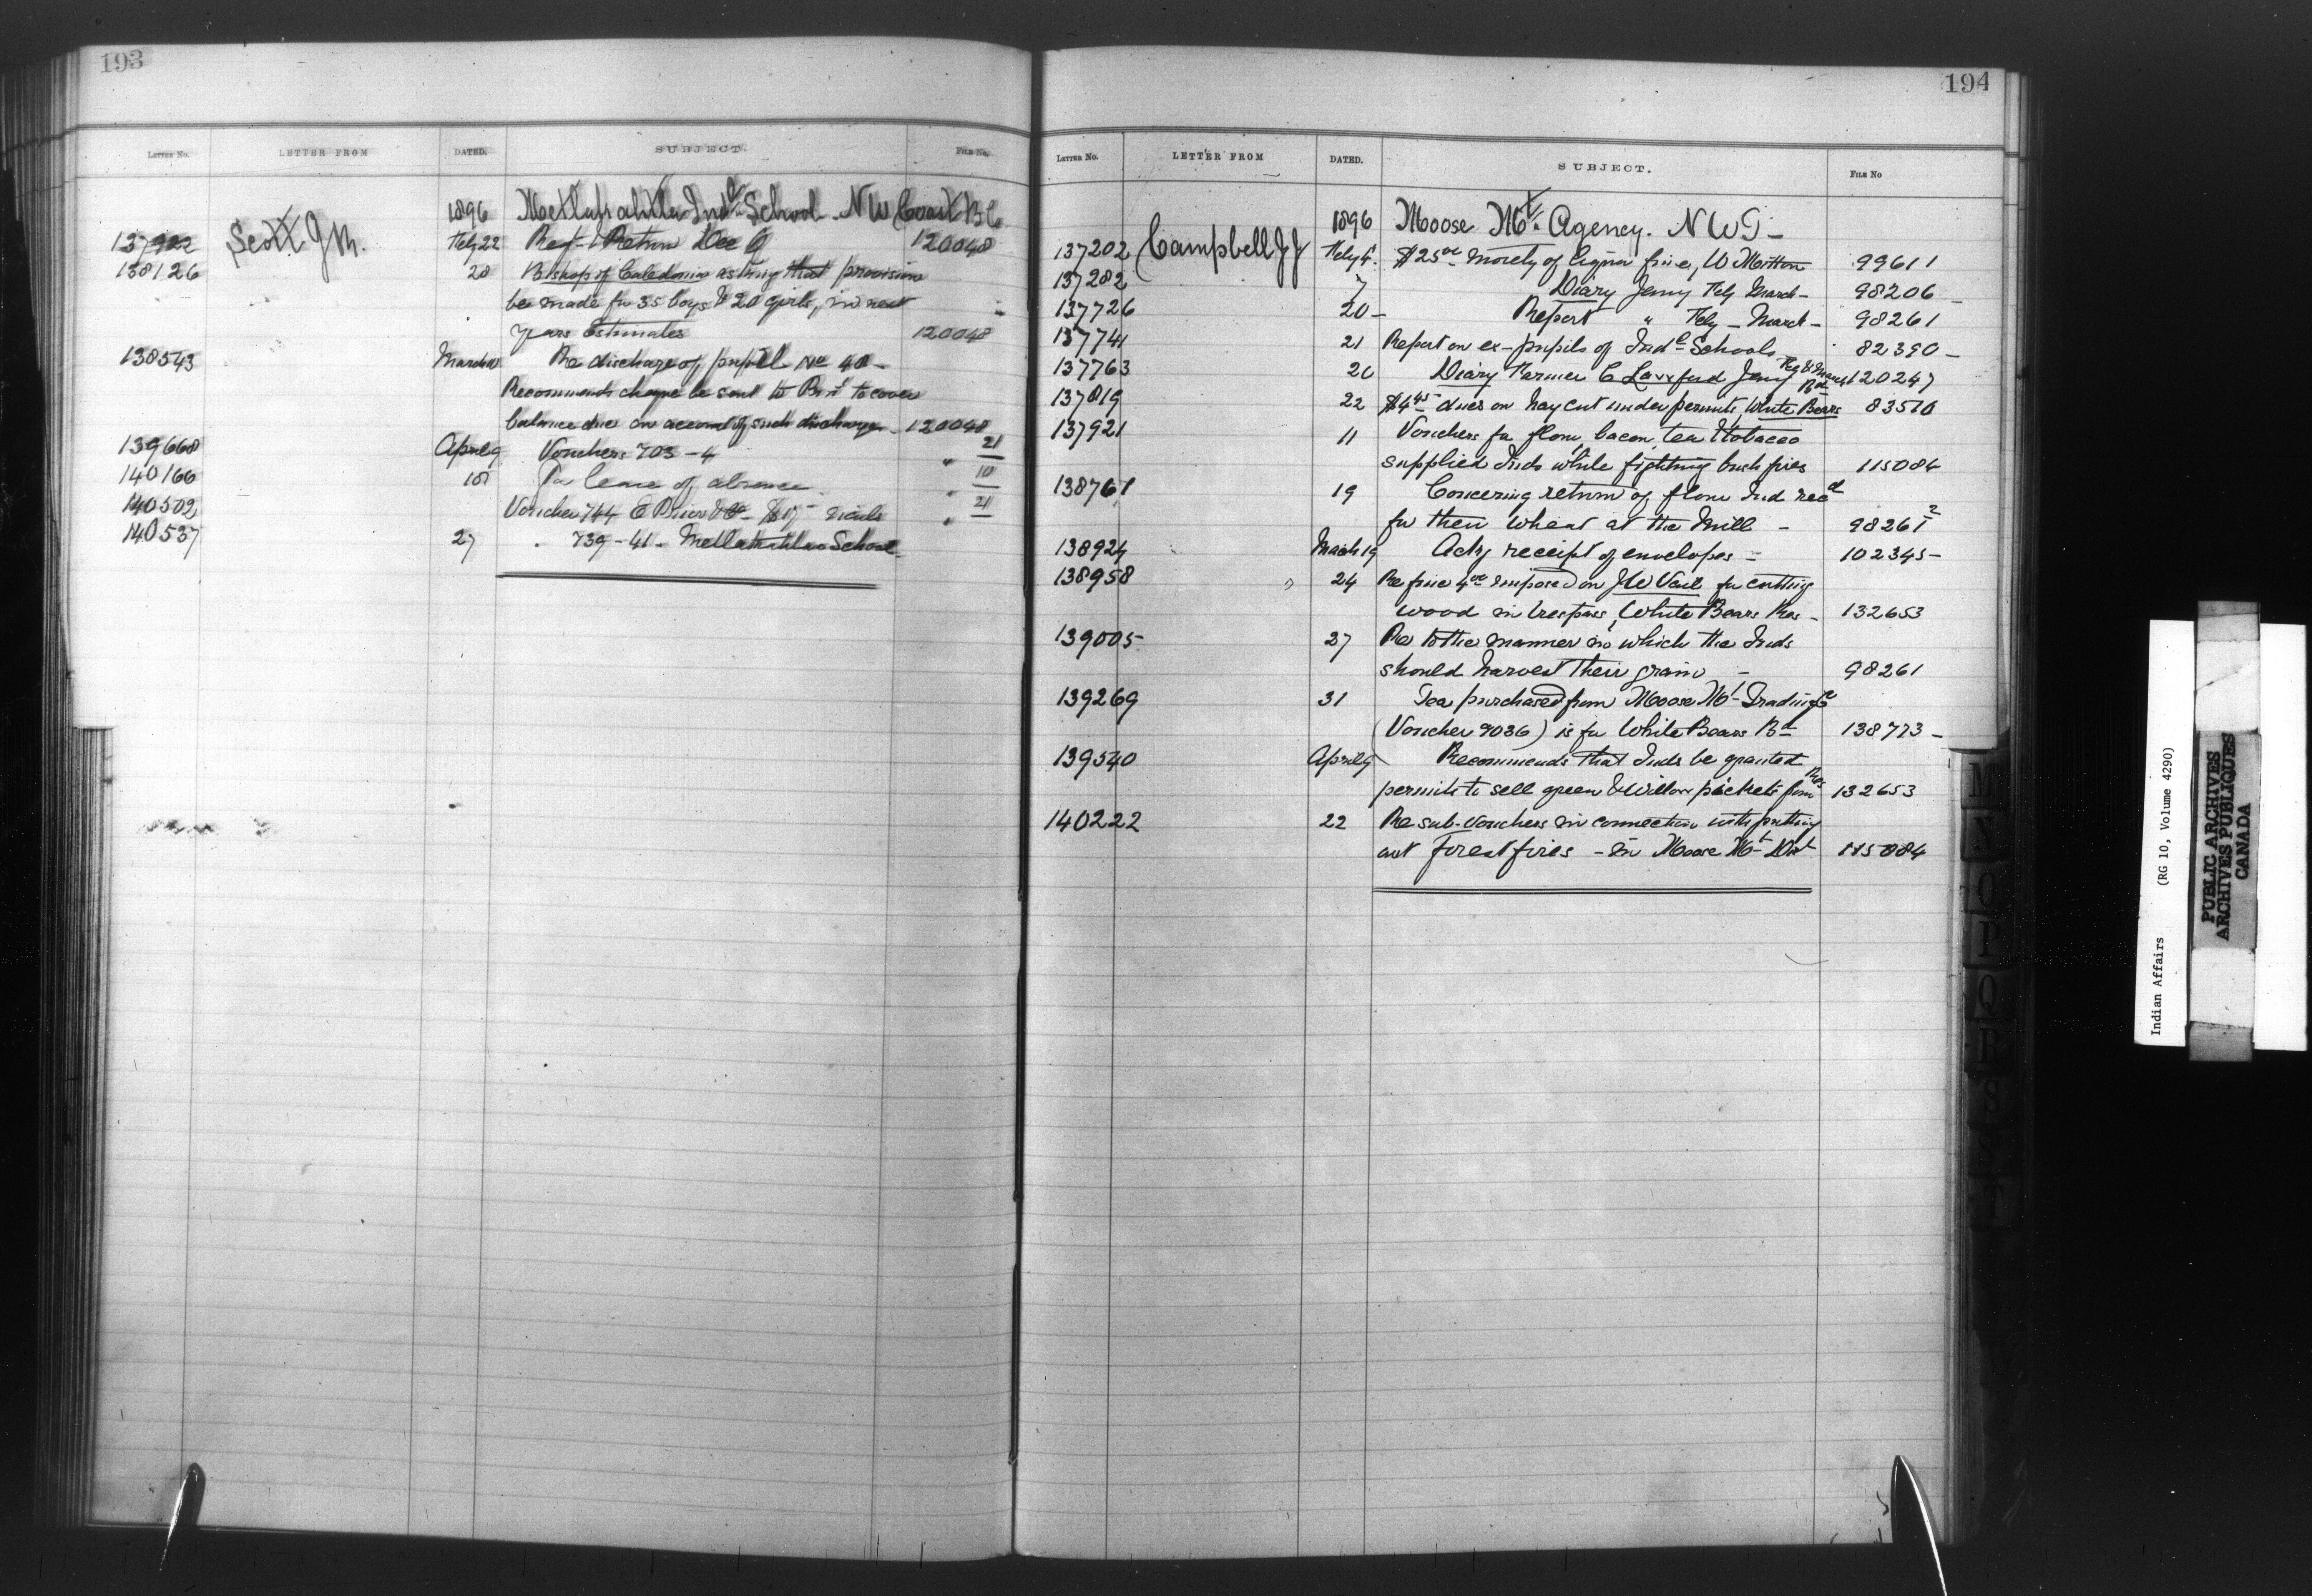 193
LETTER NO. LETTER FROM DATED. SUBJECT. FILE NO.
1896 Metlakahtla Indl School. N W Coast B C
137922 Scott J M. Feby 22 Rept & Return Dec Q 120048
138126 28 Bishop of Caledonia asking that provision
be made for 35 boys & 20 girls, in next
years Estimates 120048
138543 March Re discharge of pupil No 40 -
Recommends cheque be sent to to cover
balance due on account of such discharge - 120048
139668 April 9 Vouchers 703-4 " 21
140166 18 For leave of absence " 10
140502 Voucher 744 E Prior & Co - " 21
140537 27 " 739-41 - Metlakahtla School
194
LETTER NO. LETTER FROM DATED. SUBJECT. FILE NO
1896 Moose Mt. Agency. N W T -
137202 Campbell J J Feby 4. $25 00 moiety of liquor fine, W Mitton 99611
137282 7 Diary Jany Feby March - 98206 -
137726 20 - Report " Feby - March - 98261
137741 21 Report on ex-pupils of Indl Schools 82390 -
137763 20 Diary Farmer C Lawford Jany Feb & March 120247
137819 22 $4 45 dues on hay cut under permits, White Bears Bd 83510
137921 11 Vouchers for flour, bacon, tea & tobacco
supplied Inds while fighting bush fires 115084
138761 19 Concering return of flour Ind recd
for their wheat at the Mill - 98261 2
138924 March 19 Ackg receipt of envelopes - 102345 -
138958 " 24 Re fine 4 00 imposed on J W Vail for cutting
wood in trespass, White Bears Res - 132653
139005 27 Re to the manner in which the Inds
should harvest their grain - 98261
139269 31 Tea purchased from Moose Mt Trading Co
(Voucher 9036) is for White Bears Bd 138773 -
139540 April 9 Recommends that Inds be granted
permits to sell green & Willow pickets from Res 132653
140222 22 Re sub-vouchers in connection with putting
out forest fires - in Moose Mt Dist 115084
M
N
O
P
Q
R
S
T
Indian Affairs (RG 10, Volume 4290)
PUBLIC ARCHIVES
ARCHIVES PUBLIQUES
CANADA